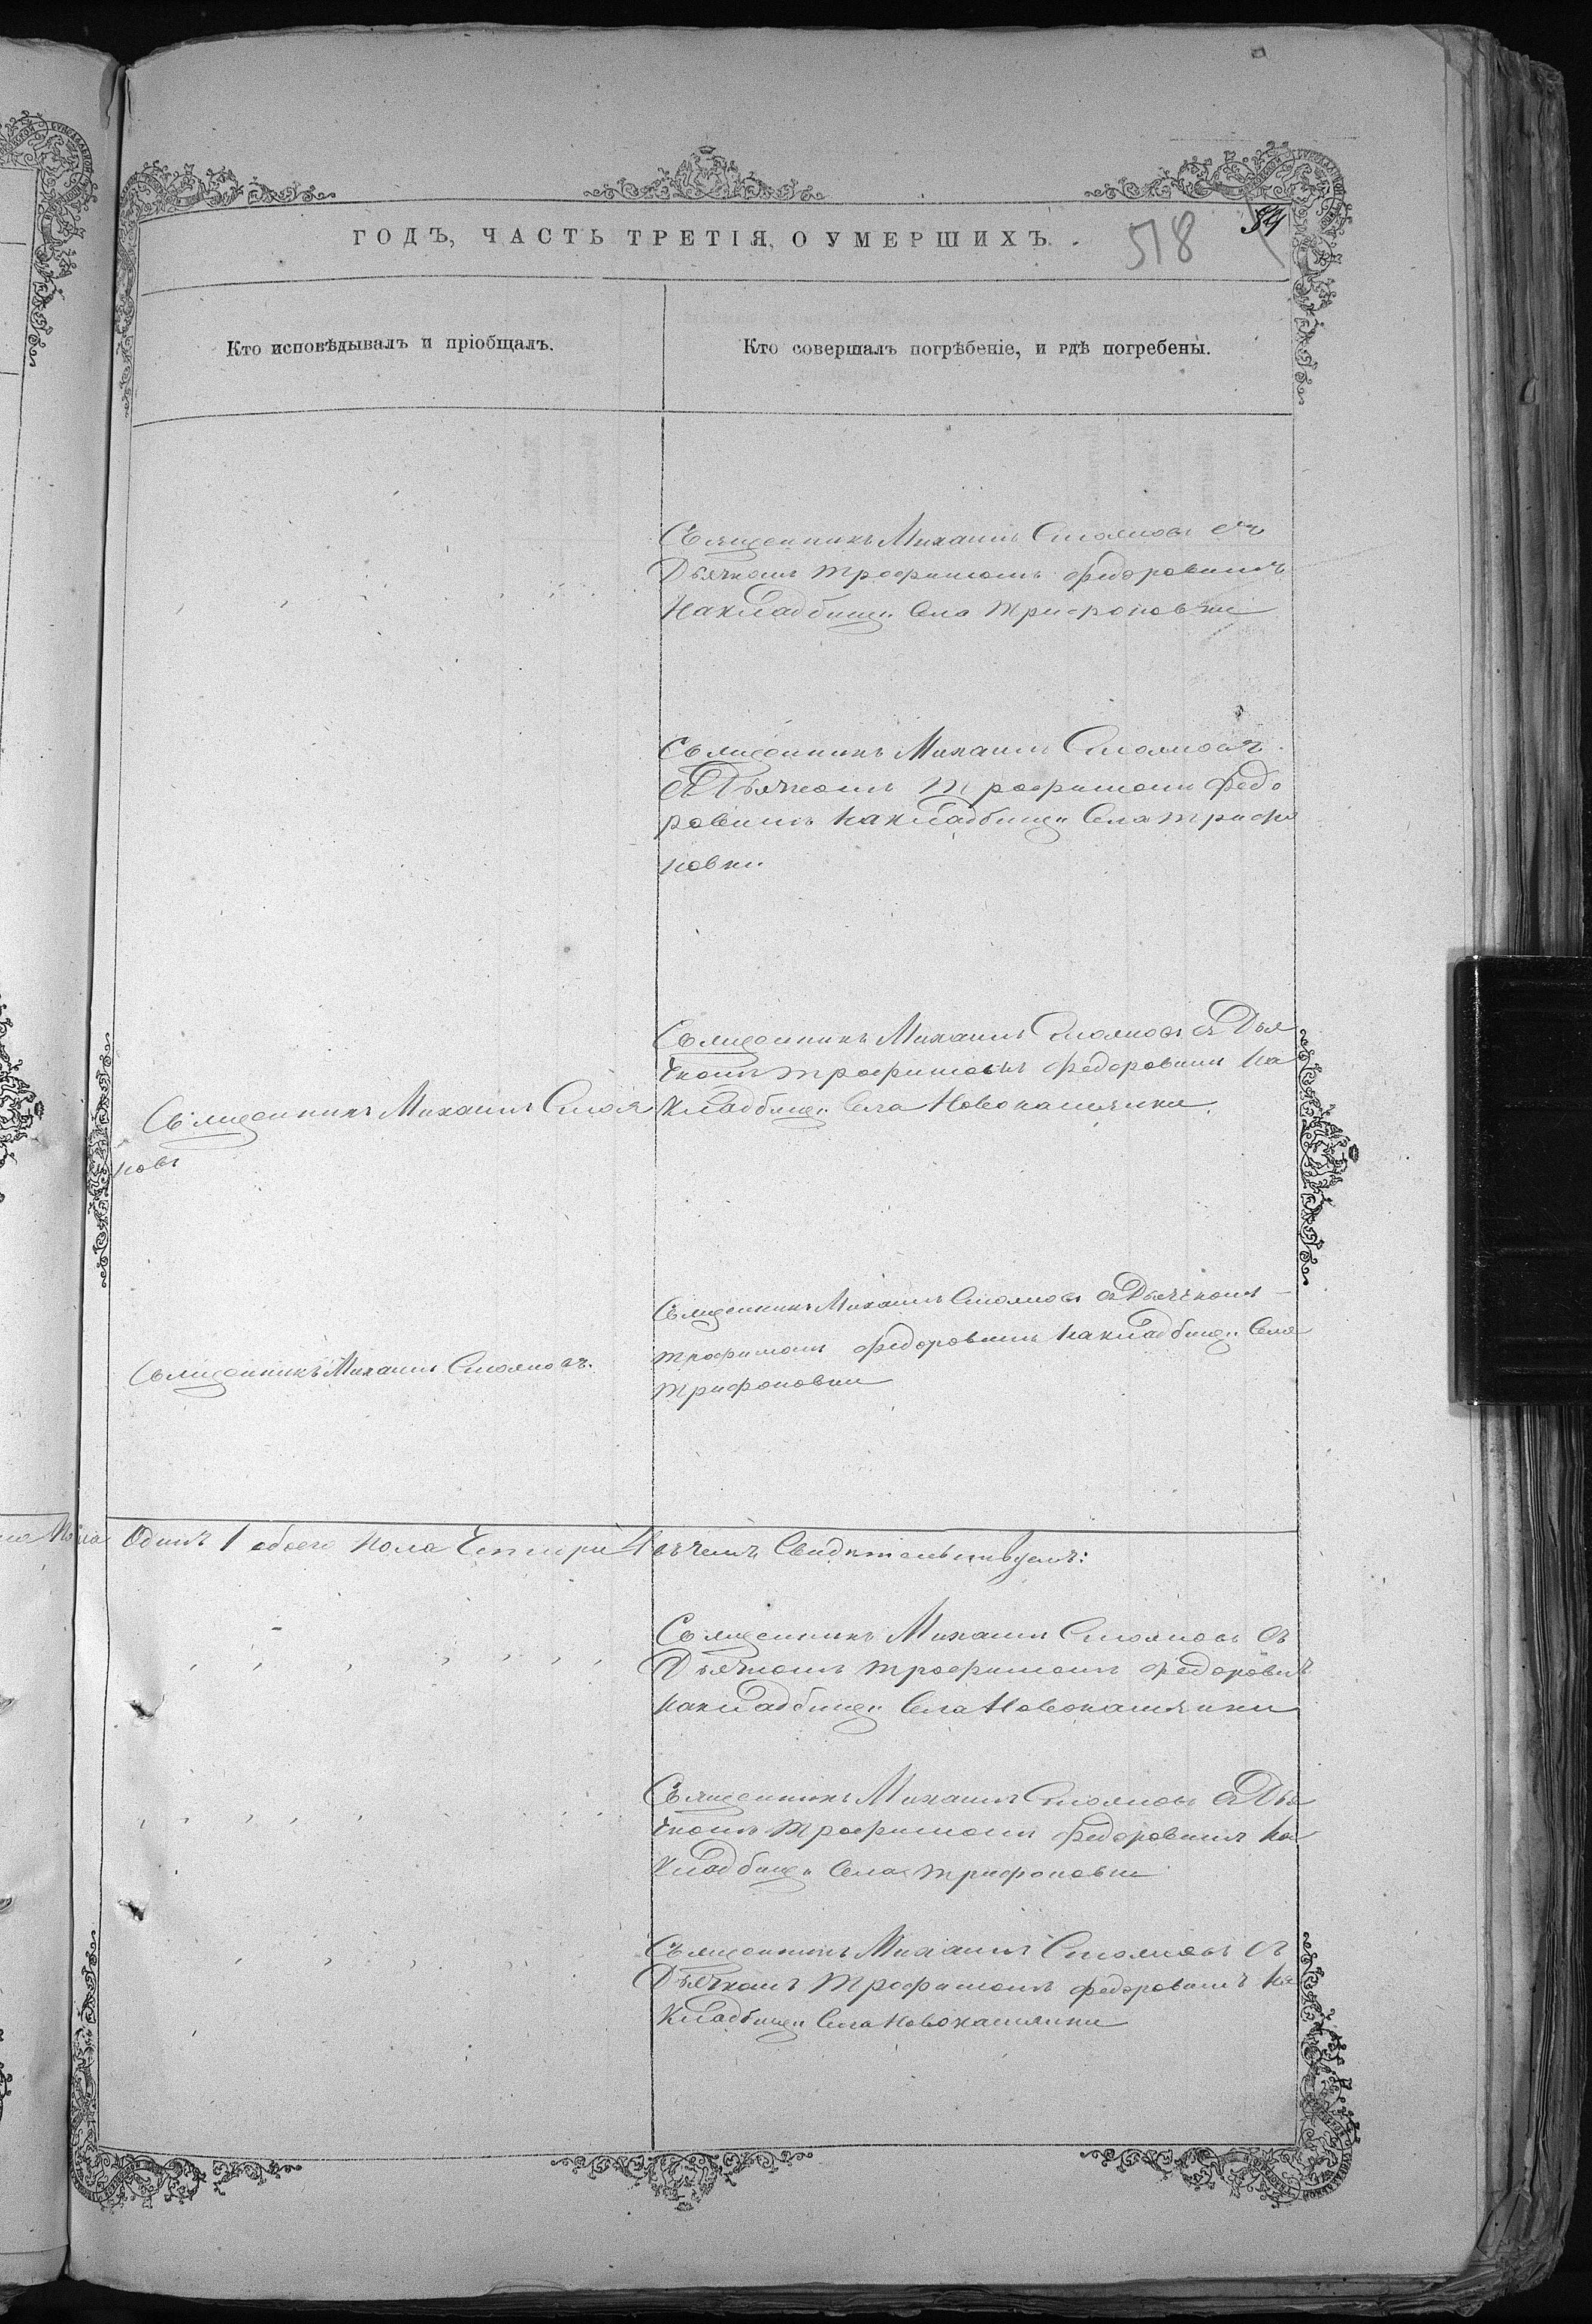 ГОДЪ, ЧАСТЬ ТРЕТІЯ, О УМЕРШИХЪ.
518
54
Кто исповѣдывалъ и пріобщалъ.
Кто совершалъ погрѣбеніе, и гдѣ погребены.
Священникъ Михаилъ Стояновъ съ
Дьячкомъ Трофимомъ Федоровимъ
На кладбищи Села Трифоновки
Священникъ Михаилъ Стояновъ
съ Дьячкомъ Трофимомъ Федо
ровимъ На кладбищи Села Трифо
новки
Священникъ Михаилъ Стояновъ съ Дья
чкомъ Трофимомъ Федоровимъ На
Кладбищи Села Новокаменки
Священникъ Михаилъ Стоя
новъ
Священникъ Михаилъ Стояновъ съ Дьячкомъ
Трофимомъ Федоровимъ На кладбищи Села
Трифоновки
Священникъ Михаилъ Стояновъ.
Одинъ 1 обоего Пола Четири 4 въ чемъ Свидетельствуемъ:
Священникъ Михаилъ Стояновъ Съ
Дьячкомъ Трофимомъ Федоровимъ
На кладбищи Села Новокаменки
Священникъ Михаилъ Стояновъ съ Дья
чкомъ Трофимомъ Федоровимъ На
Кладбищи Села Трифоновки
Священникъ Михаилъ Стояновъ съ
Дьячкомъ Трофимомъ Федоровимъ На
Кладбищи Села Новокаменки